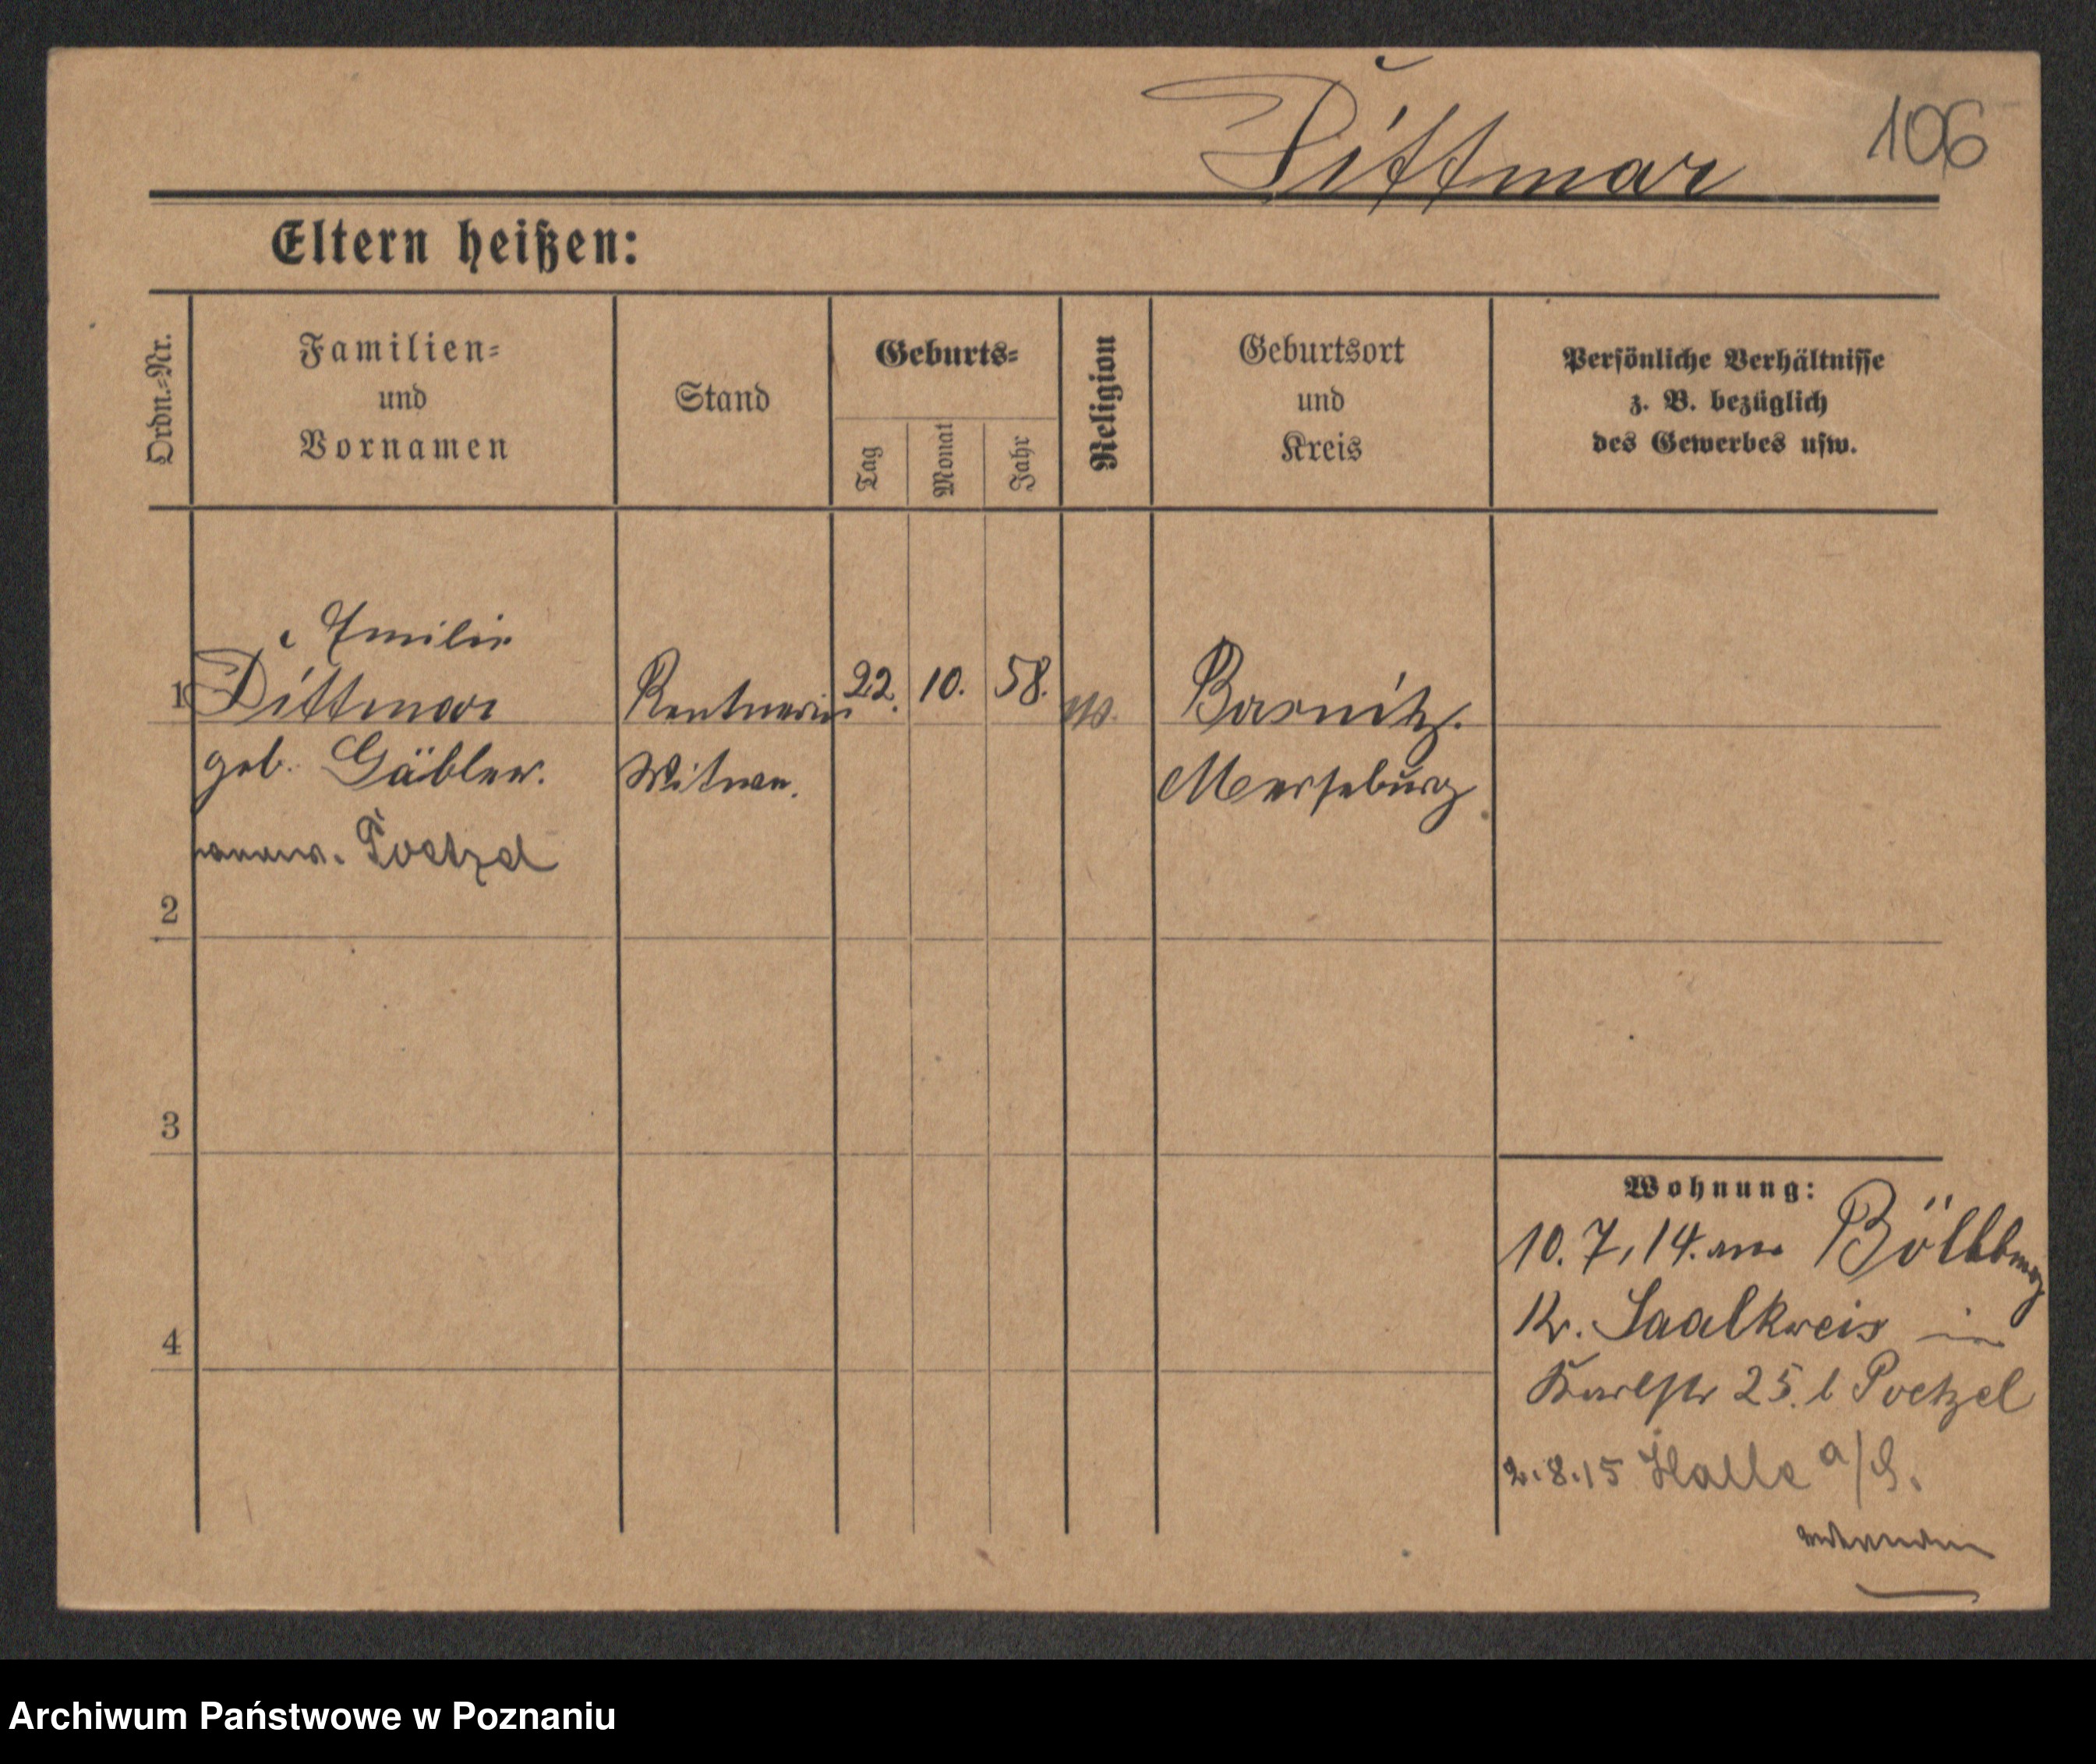 Dittmar 106
Eltern heißen:
Ordn.-Nr.
Familien- und Vornamen
Stand
Geburts-
Tag
Monat
Jahr
Religion
Geburtsort und Kreis
Persönliche Verhältnisse
z. B. bezüglich
des Gewerbes usw.
Emilie
1 Dittmar Rentnerin 22. 10. 58.
geb. Gäbler. Witwe. Merseburg
Poetzel
2
3
4
Wohnung:
10. 7. 14. Böllberg
Kr. Saalkreis
Karlstr 25. b Poetzel
2.8.15 Halle a/S.
Archiwum Państwowe w Poznaniu